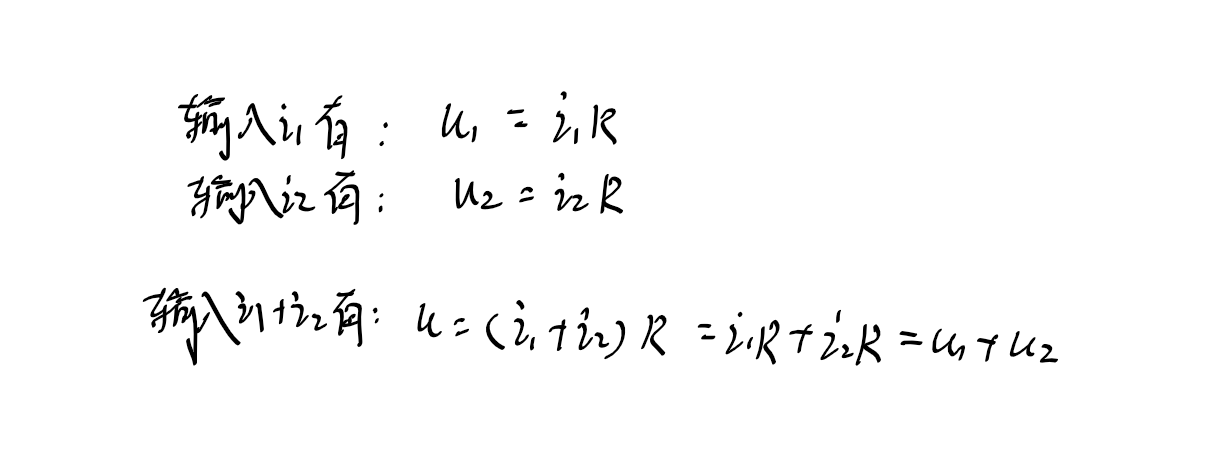 输入i₁有: u₁ = i₁R
输入i₂有: u₂ = i₂R
输入i₁+i₂有: u = (i₁+i₂)R = i₁R+i₂R = u₁+u₂